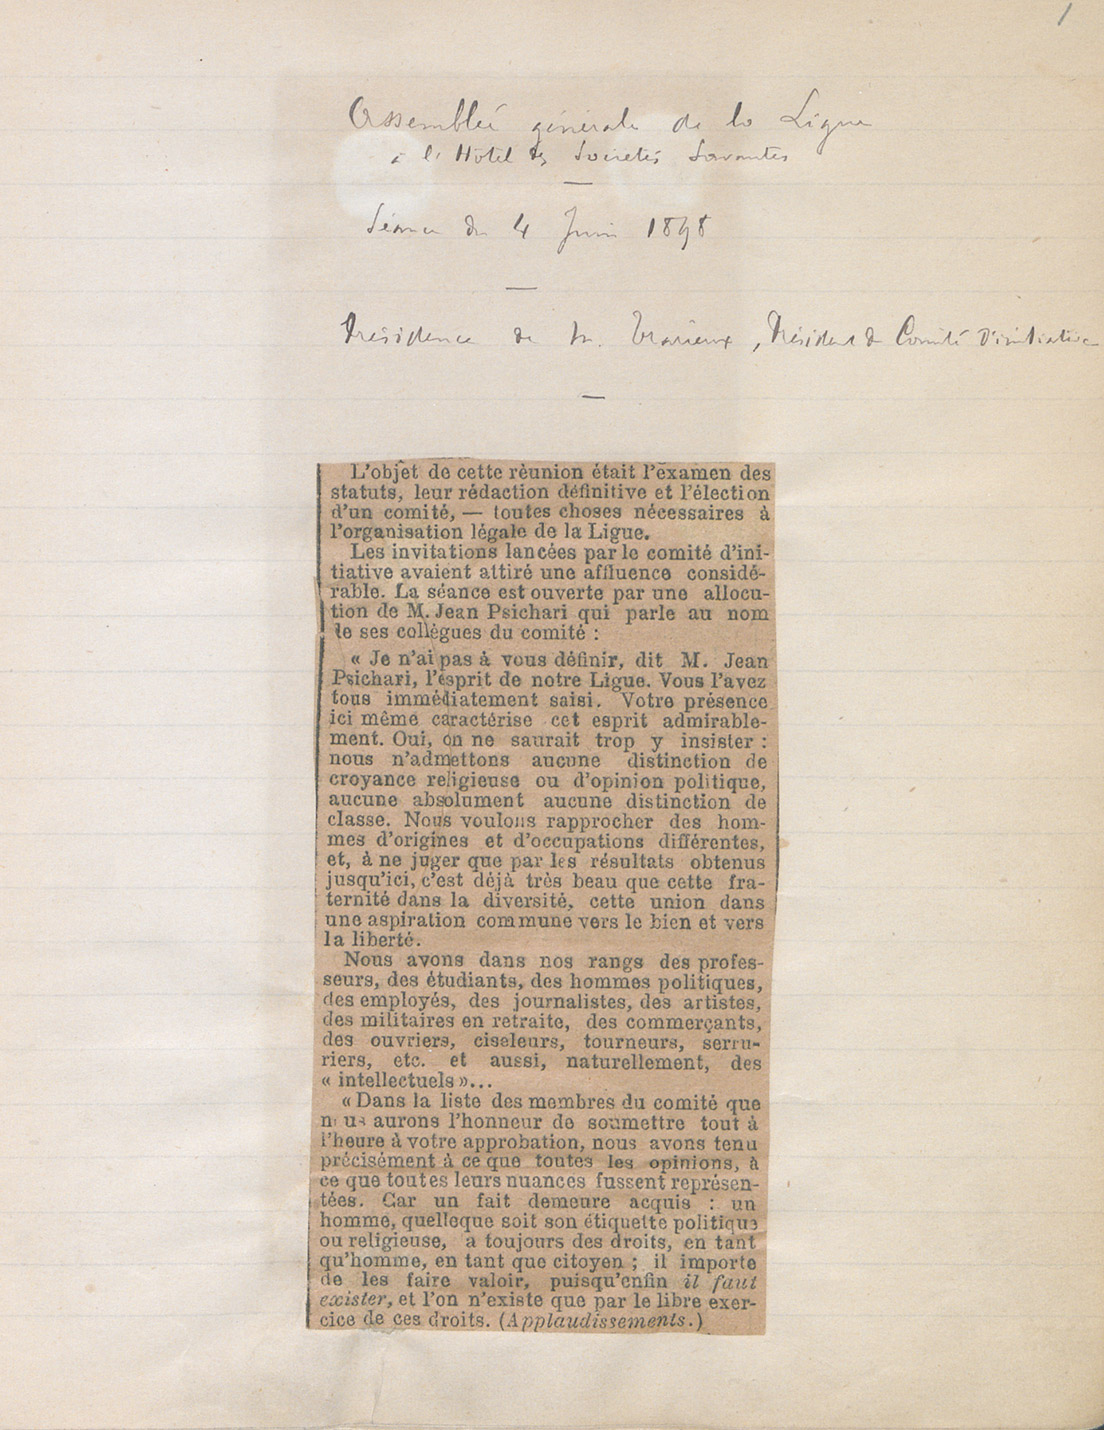 1
Assemblée générale de la Ligue
à l'Hôtel des Sociétés Savantes
—
Séance du 4 Juin 1898
—
Présidence de M. Trarieux, Président du Comité d'initiative
—
L'objet de cette réunion était l'examen des
statuts, leur rédaction définitive et l'élection
d'un comité, — toutes choses nécessaires à
l'organisation légale de la Ligue.
Les invitations lancées par le comité d'ini-
tiative avaient attiré une affluence considé-
rable. La séance est ouverte par une allocu-
tion de M. Jean Psichari qui parle au nom
de ses collègues du comité :
« Je n'ai pas à vous définir, dit M. Jean
Psichari, l'esprit de notre Ligue. Vous l'avez
tous immédiatement saisi. Votre présence
ici même caractérise cet esprit admirable-
ment. Oui, on ne saurait trop y insister :
nous n'admettons aucune distinction de
croyance religieuse ou d'opinion politique,
aucune absolument aucune distinction de
classe. Nous voulons rapprocher des hom-
mes d'origines et d'occupations différentes,
et, à ne juger que par les résultats obtenus
jusqu'ici, c'est déjà très beau que cette fra-
ternité dans la diversité, cette union dans
une aspiration commune vers le bien et vers
la liberté.
Nous avons dans nos rangs des profes-
seurs, des étudiants, des hommes politiques,
des employés, des journalistes, des artistes,
des militaires en retraite, des commerçants,
des ouvriers, ciseleurs, tourneurs, serru-
riers, etc. et aussi, naturellement, des
« intellectuels »...
« Dans la liste des membres du comité que
nous aurons l'honneur de soumettre tout à
l'heure à votre approbation, nous avons tenu
précisément à ce que toutes les opinions, à
ce que toutes leurs nuances fussent représen-
tées. Car un fait demeure acquis : un
homme, quelleque soit son étiquette politique
ou religieuse, a toujours des droits, en tant
qu'homme, en tant que citoyen ; il importe
de les faire valoir, puisqu'enfin il faut
exister, et l'on n'existe que par le libre exer-
cice de ces droits. (Applaudissements.)